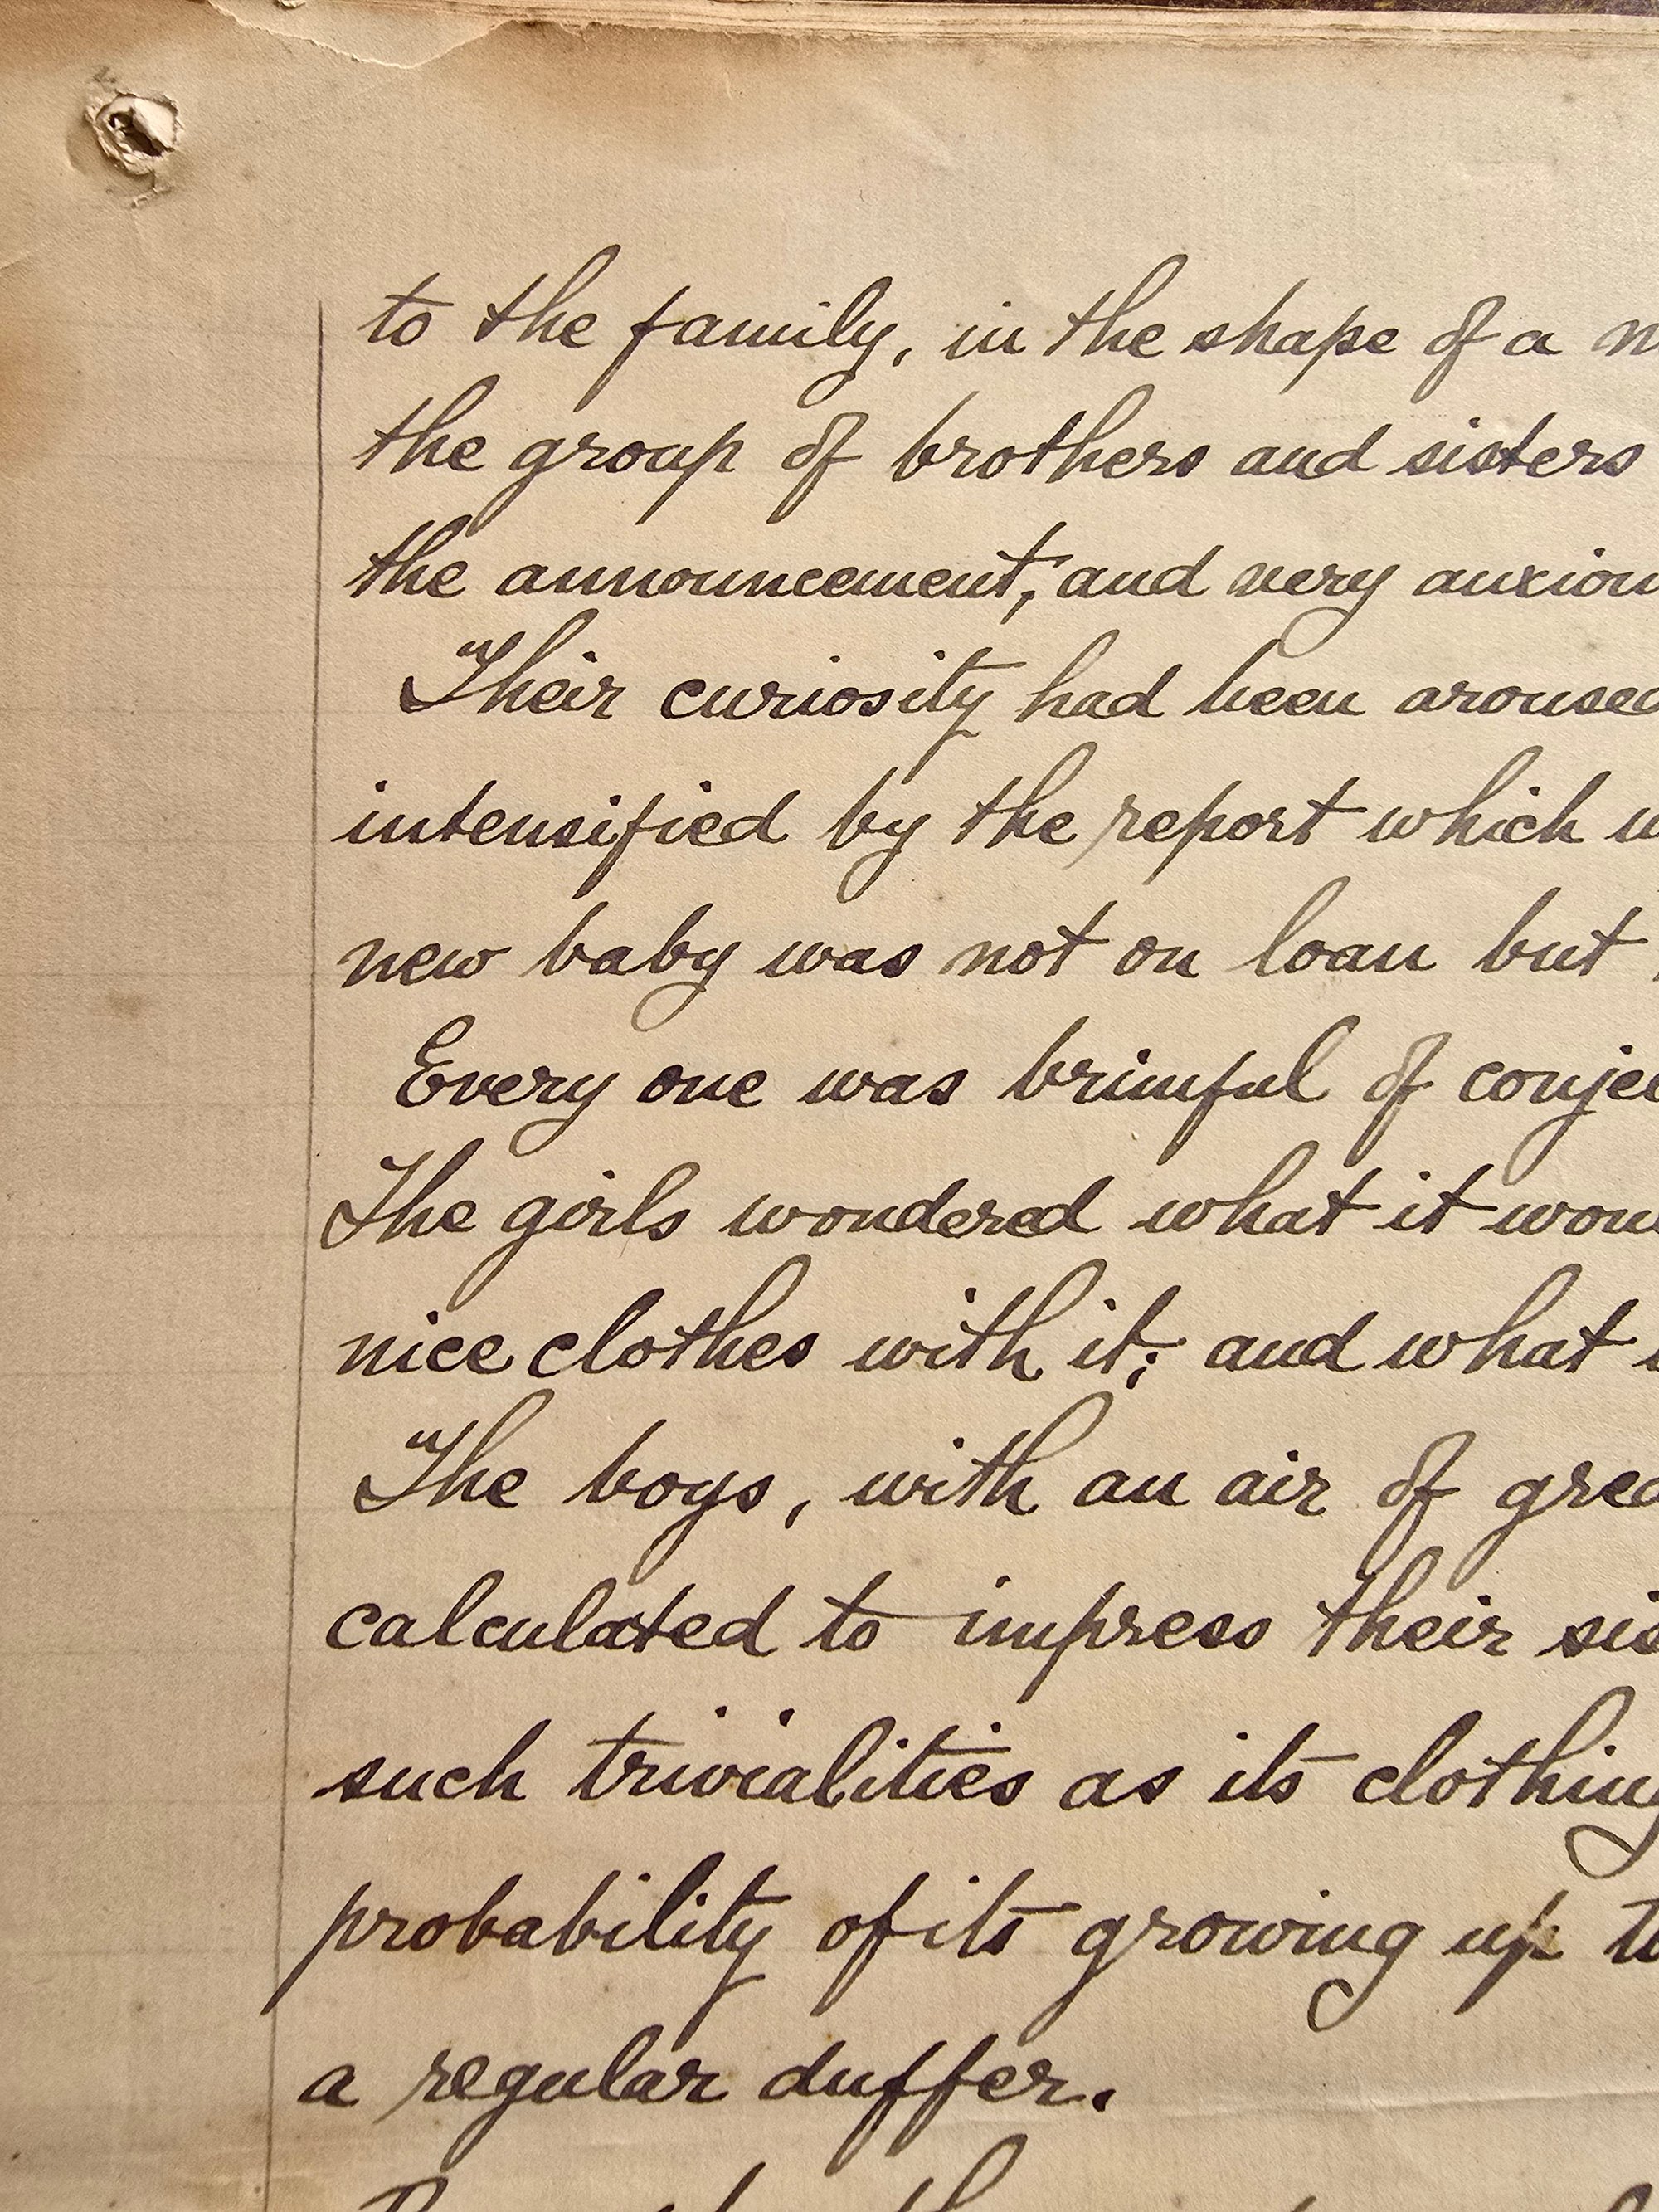 to the family, in the shape of a
the group of brothers and sisters
the announcement, and very
Their curiosity had been aroused
intensified by the report which
new baby was not on loan but
Every one was brimful of
The girls wondered what it
nice clothes with it; and what
The boys, with an air of
calculated to impress their
such trivialities as its clothing
probability of its growing up
a regular duffer.